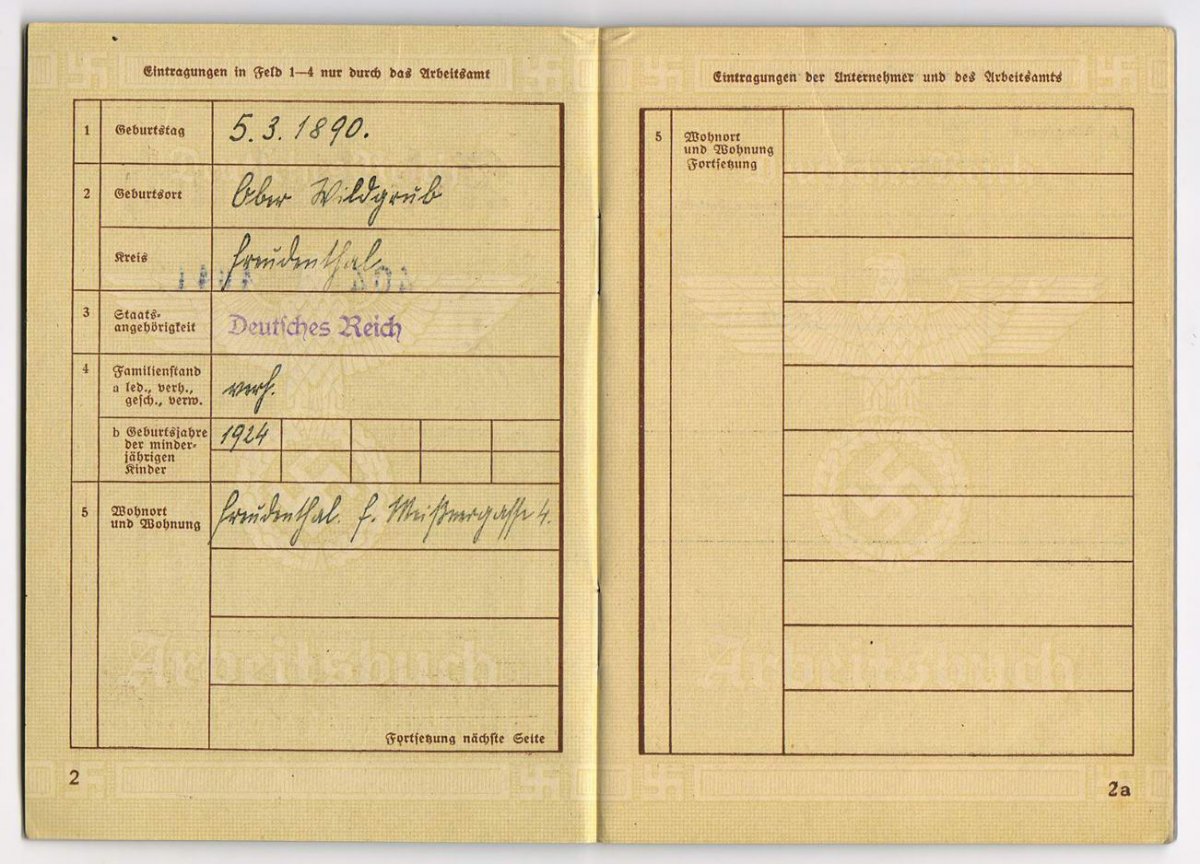 Eintragungen in Feld 1—4 nur durch das Arbeitsamt
1 Geburtstag 5. 3. 1890.
2 Geburtsort Ober Wildgrub
Kreis Freudenthal
3 Staats-
angehörigkeit Deutsches Reich
4 Familienstand
a led., verh.,
gesch., verw. verh.
b Geburtsjahre 1924
der minder-
jährigen
Kinder
5 Wohnort
und Wohnung Freudenthal. F. Meißnergasse 4.
Fortsetzung nächste Seite
2
Arbeitsbuch
Eintragungen der Unternehmer und des Arbeitsamts
5 Wohnort
und Wohnung
Fortsetzung
Arbeitsbuch
2a